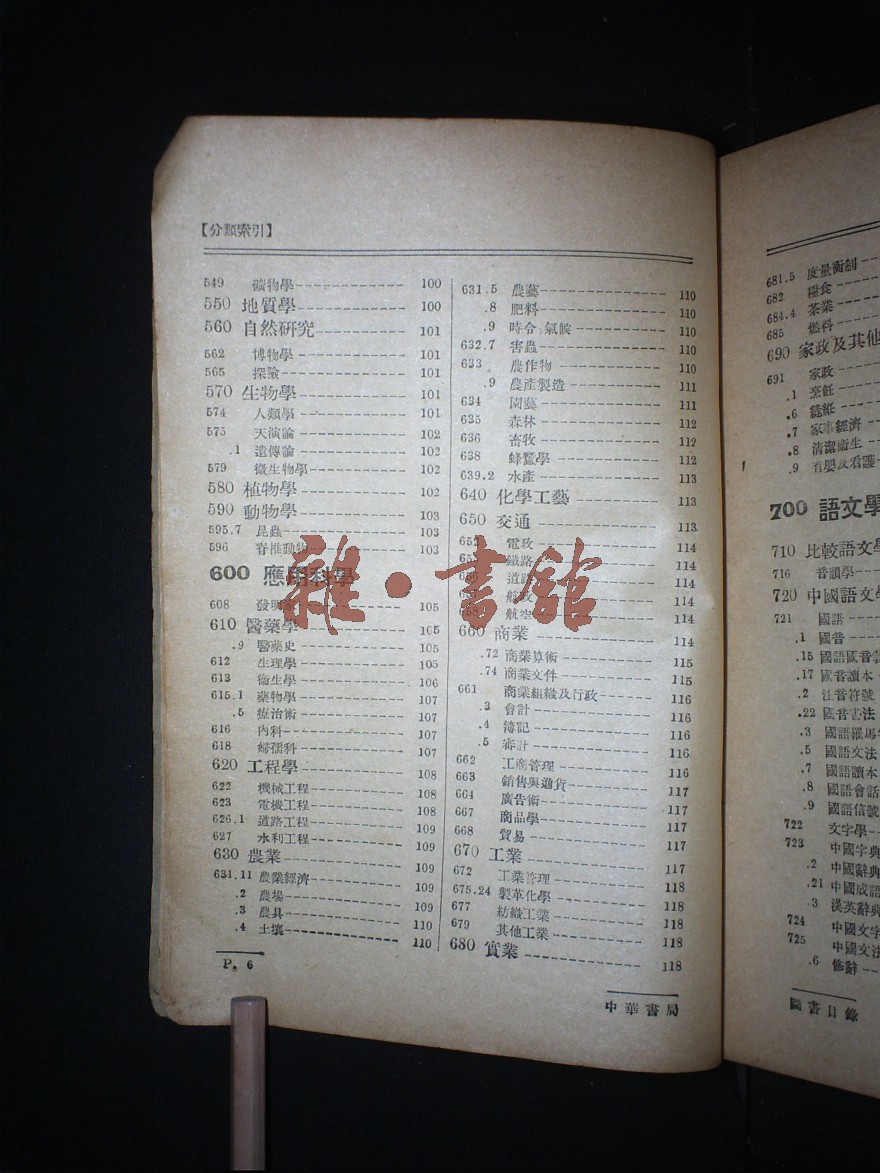 【分類索引】
549 礦物學 100
550 地質學 100
560 自然研究 101
562 博物學 101
565 探險 101
570 生物學 101
574 人類學 101
575 天演論 102
.1 遺傳論 102
579 微生物學 102
580 植物學 102
590 動物學 103
595.7 昆蟲 103
596 脊椎動物 103
600 應用科學
608 發明家 105
610 醫藥學 105
.9 醫藥史 105
612 生理學 105
613 衞生學 106
615.1 藥物學 107
.5 療治術 107
616 內科 107
618 婦孺科 107
620 工程學 108
622 機械工程 108
623 電機工程 108
626.1 道路工程 109
627 水利工程 109
630 農業 109
631.11 農業經濟 109
.2 農場 109
.3 農具 110
.4 土壤 110
P. 6
631.5 農藝 110
.8 肥料 110
.9 時令,氣候 110
632.7 害蟲 110
633 農作物 110
.9 農產製造 111
634 園藝 111
635 森林 112
636 畜牧 112
638 蜂蠶學 112
639.2 水產 113
640 化學工藝 113
650 交通 113
電政 114
鐵路 114
道路 114
航政 114
航空 114
660 商業 114
.72 商業算術 115
.74 商業文件 115
661 商業組織及行政 116
.3 會計 116
.4 簿記 116
.5 審計 116
662 工商管理 117
663 銷售與進貨 117
664 廣告術 117
667 商品學 117
668 貿易 117
670 工業 117
672 工業管理 118
675.24 製革化學 118
677 紡織工業 118
679 其他工業 118
680 實業 118
中華書局
雜·書館
681.5 度量衡制
682 糧食
684.4 茶業
685 燃料
690 家政及其他
691 家政
.1 烹飪
.6 縫紙
.7 家事經濟
.8 清潔衞生
.9 育嬰及看護
700 語文學
710 比較語文學
716 音韻學
720 中國語文學
721 國語
.1 國音
.15 國語國音
.17 國音讀本
.2 注音符號
.22 國音書法
.3 國語羅馬
.5 國語文法
.7 國語讀本
.8 國語會話
.9 國語信號
722 文字學
723 中國字典
.2 中國辭典
.21 中國成語
.3 漢英辭典
724 中國文字
725 中國文法
.6 修辭
圖書目錄